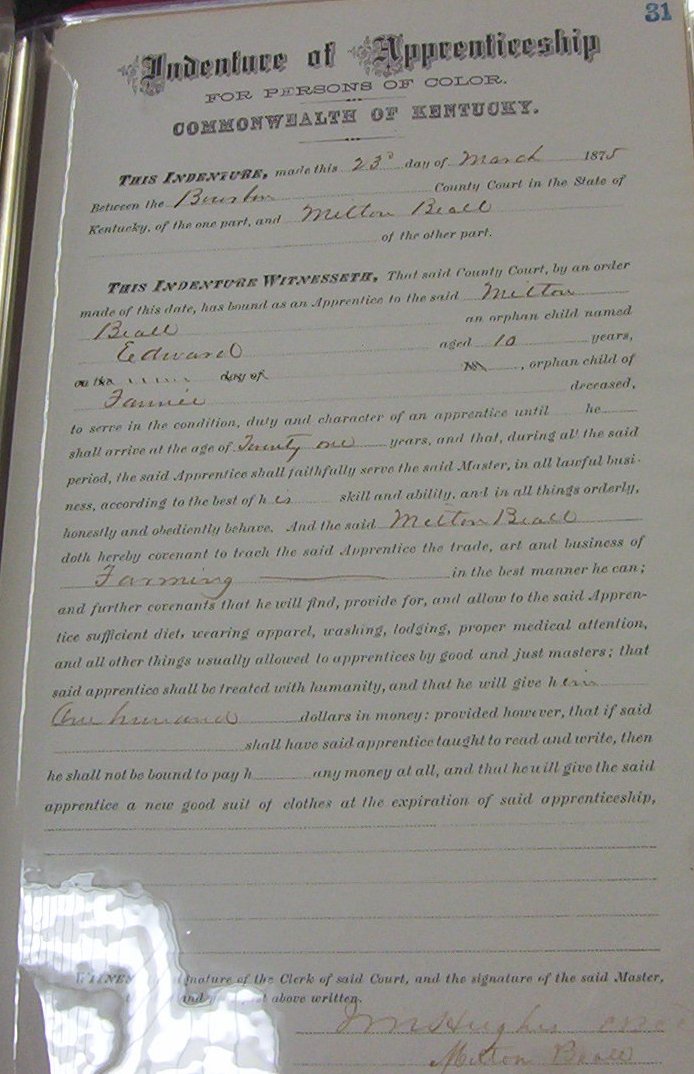 31
Indenture of Apprenticeship
FOR PERSONS OF COLOR.
COMMONWEALTH OF KENTUCKY.
THIS INDENTURE, made this 23d day of March 1875
Between the Bourbon County Court in the State of
Kentucky, of the one part, and Milton Beall
of the other part.
THIS INDENTURE WITNESSETH, That said County Court, by an order
made of this date, has bound as an Apprentice to the said Milton
Beall an orphan child named
Edward aged 10 years,
on the day of , orphan child of
Fannie deceased,
to serve in the condition, duty and character of an apprentice until he
shall arrive at the age of Twenty one years, and that, during all the said
period, the said Apprentice shall faithfully serve the said Master, in all lawful busi-
ness, according to the best of his skill and ability, and in all things orderly,
honestly and obediently behave. And the said Milton Beall
doth hereby covenant to teach the said Apprentice the trade, art and business of
Farming in the best manner he can;
and further covenants that he will find, provide for, and allow to the said Appren-
tice sufficient diet, wearing apparel, washing, lodging, proper medical attention,
and all other things usually allowed to apprentices by good and just masters; that
said apprentice shall be treated with humanity, and that he will give him
One hundred dollars in money: provided however, that if said
shall have said apprentice taught to read and write, then
he shall not be bound to pay h any money at all, and that he will give the said
apprentice a new good suit of clothes at the expiration of said apprenticeship,
signature of the Clerk of said Court, and the signature of the said Master,
and above written.
Hughes
Milton Beall